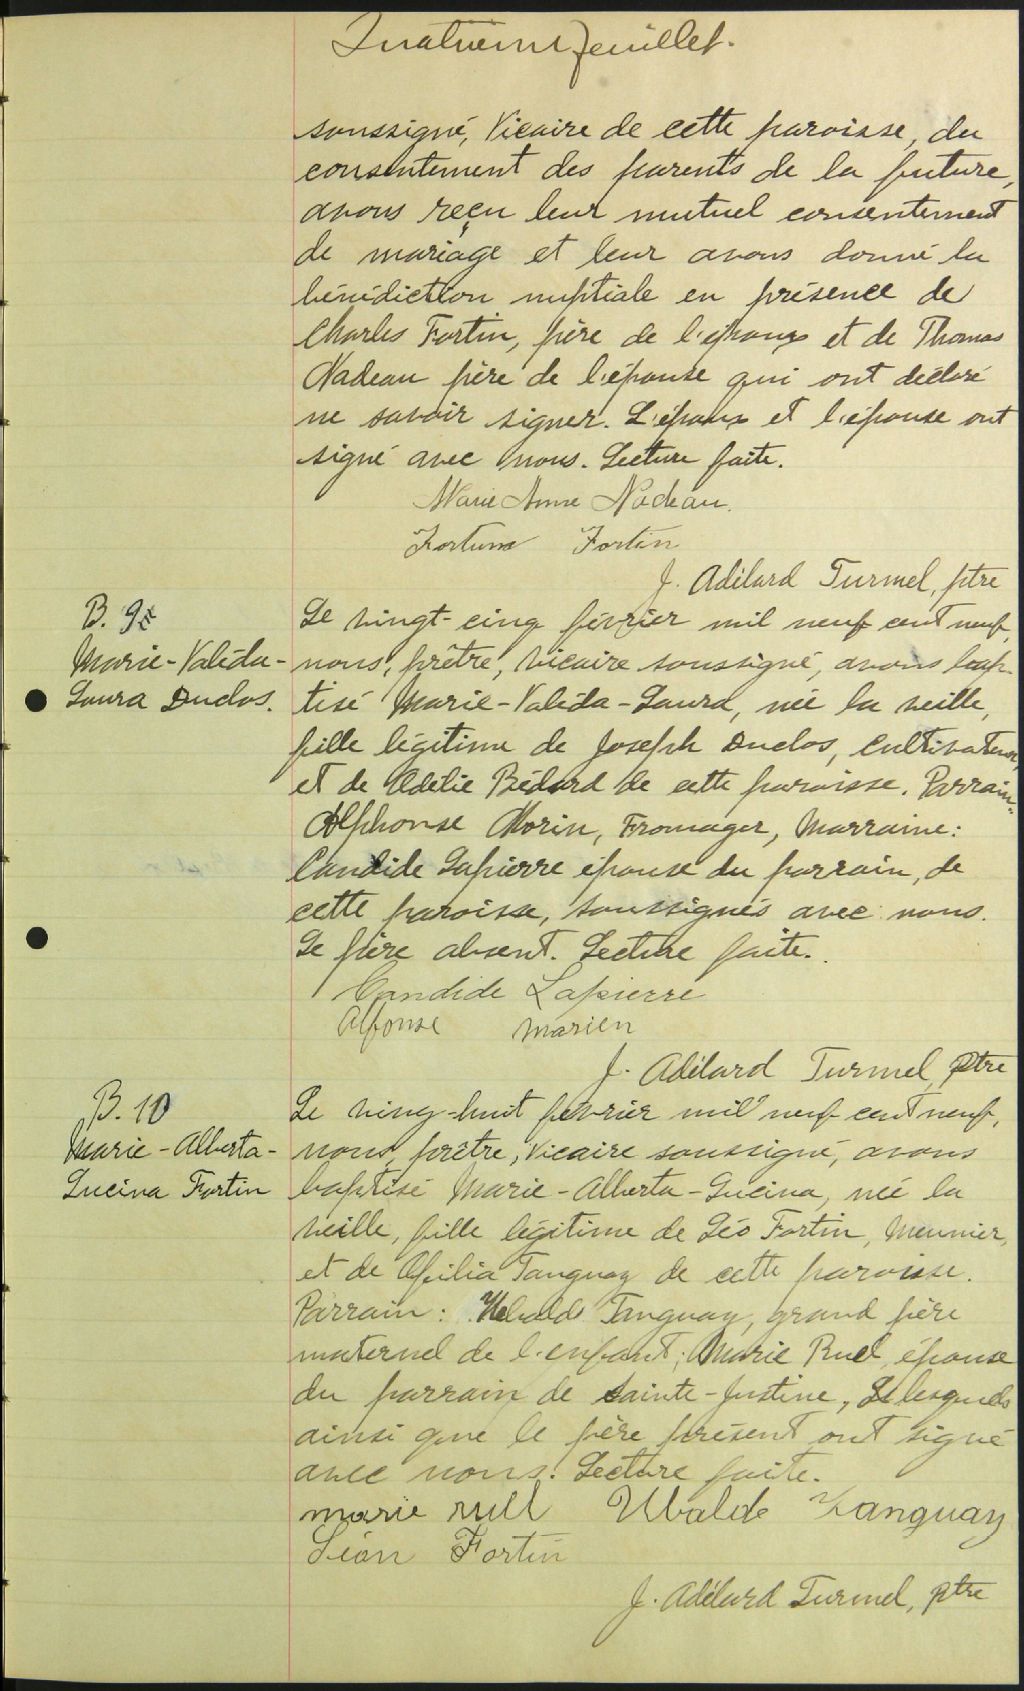 Quatrième feuillet.
soussigné, Vicaire de cette paroisse, du
consentement des parents de la future,
avons reçu leur mutuel consentement
de mariage et leur avons donné la
bénédiction nuptiale en présence de
Charles Fortin, père de l'époux et de Thomas
Nadeau père de l'épouse qui ont déclaré
ne savoir signer. L'époux et l'épouse ont
signé avec nous. Lecture faite.
Marie Anne Nadeau.
Fortuna Fortin
J. Adélard Turmel, ptre
B. 9
Marie-Valéda-
Laura Duclos.
Le vingt-cinq février mil neuf cent neuf,
nous, prêtre, vicaire soussigné, avons bap-
tisé Marie-Valéda-Laura, née la veille,
fille légitime de Joseph Duclos, cultivateur,
et de Adélie Bédard de cette paroisse. Parrain:
Alphonse Morin, Fromager, Marraine:
Candide Lapierre épouse du parrain, de
cette paroisse, soussignés avec nous.
Le père absent. Lecture faite.
Candide Lapierre
Alfonse Marien
J. Adélard Turmel, ptre
B. 10
Marie-Alberta-
Lucina Fortin
Le ving-huit février mil neuf cent neuf,
nous, prêtre, Vicaire soussigné, avons
baptisé Marie-Alberta-Lucina, née la
veille, fille légitime de Léo Fortin, Meunier,
et de Ofilia Tanguay de cette paroisse.
Parrain: Ubalde Tanguay, grand père
maternel de l'enfant; Marie Ruel, épouse
du parrain de Sainte-Justine, lesquels
ainsi que le père présent ont signé
avec nous. Lecture faite.
marie ruell Ubalde Tanguay
Léon Fortin
J. Adélard Turmel, ptre